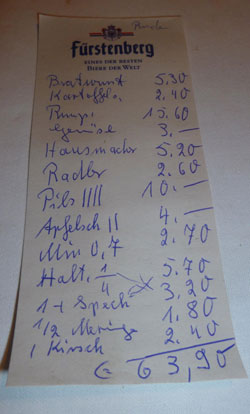 Fürstenberg
EINES DER BESTEN
BIERE DER WELT
Bratwurst 5.30
Kartoffels. 2.40
Rump. 15.60
Gemüse 3,—
Hausmacher 5.20
Radler 2.60
Pils |||| 10.—
Apfelsch || 4.—
Min 0,7 2.70
Halt. 1/4 5.70
1 + Speck 3,20
1/2 Meringe 1.80
1 Kirsch 2.40
63,90